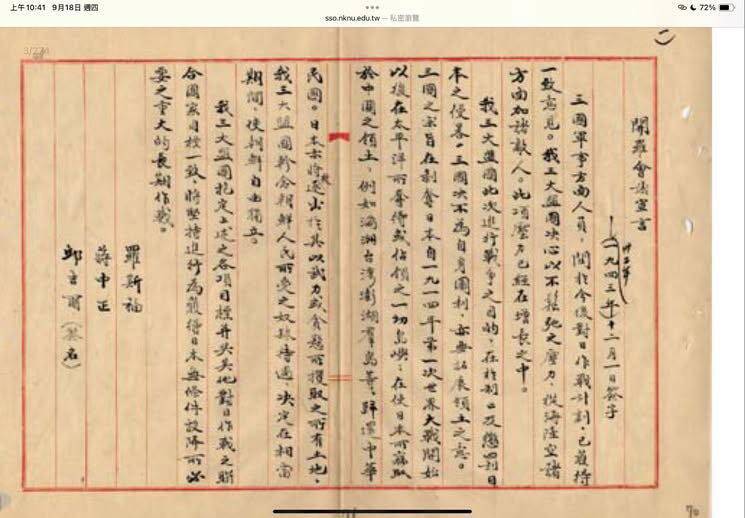 上午10:41 9月18日 週四
72%
sso.nknu.edu.tw — 私密瀏覽
3/274
(一)
開羅會議宣言
卅二年
(一九四三年)十二月一日簽字
三國軍事方面人員,關於今後對日作戰計劃,已獲得
一致意見。我三大盟國決心以不鬆弛之壓力,從海陸空諸
方面加諸敵人。此項壓力已經在增長之中。
我三大盟國此次進行戰爭之目的,在於制止及懲罰日
本之侵畧,三國決不為自身圖利,亦無拓展領土之意。
三國之宗旨在剝奪日本自一九一四年第一次世界大戰開始
以後在太平洋所奪得或佔領之一切島嶼;在使日本所竊取
於中國之領土,例如滿洲台灣澎湖羣島等,歸還中華
民國。日本亦將被逐出於其以武力或貪慾所攫取之所有土地,
我三大盟國軫念朝鮮人民所受之奴隸待遇,決定在相當
期間,使朝鮮自由獨立。
我三大盟國抱定上述之各項目標并與其他對日作戰之聯
合國家目標一致,將堅持進行為獲得日本無條件投降所必
要之重大的長期作戰。
羅斯福
蔣中正
邱吉爾(簽名)
70